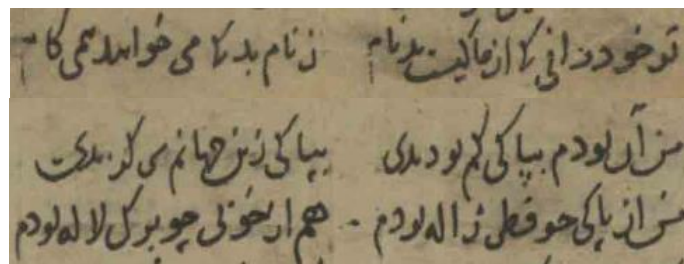 تو خود دانی کز ما کیست بدنام ز نام بد خواهد همی کام
من آن بودم بپاکی کم تو دیدی بپاکی زین جهانم بر گزیدی
من از پاکی چو قطر ژاله بودم هم از خوبی چو برگ لاله بودم